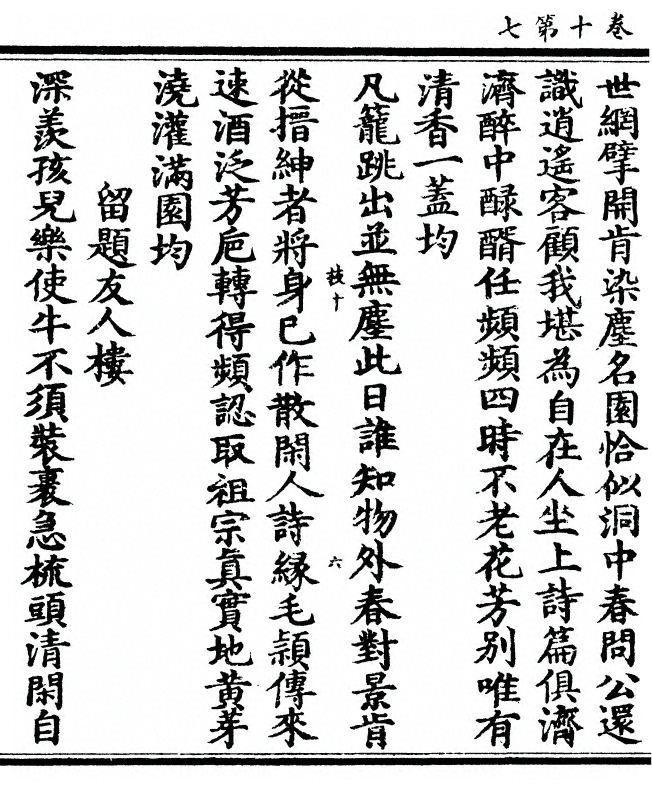 卷十第七
世網擘開肯染塵名園恰似洞中春問公還
識逍遙客顧我堪為自在人坐上詩篇俱濟
濟醉中醁醑任頻頻四時不老花芳别唯有
清香一蓋均
凡籠跳出並無塵此日誰知物外春對景肯
枝十 六
從搢紳者將身已作散閑人詩緣毛頴傳來
速酒泛芳卮轉得頻認取祖宗真實地黄芽
澆灌滿園均
留題友人樓
深羨孩兒樂使牛不須裝裹急梳頭清閑自